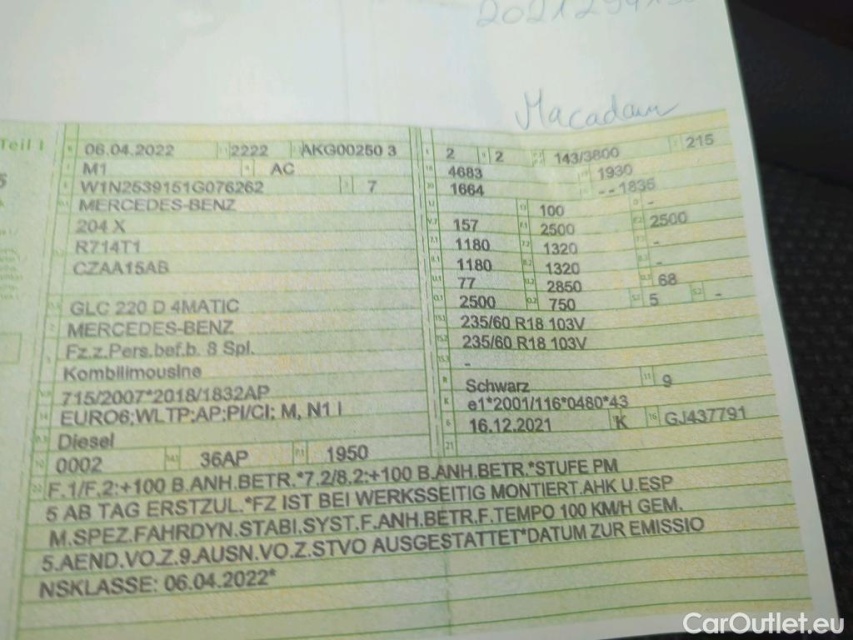 Macadam
Teil I
06.04.2022 2222 AKG00250 3
M1 AC
W1N2539151G076262 7
MERCEDES-BENZ
204 X
R714T1
CZAA15AB
GLC 220 D 4MATIC
MERCEDES-BENZ
Fz.z.Pers.bef.b. 8 Spl.
Kombilimousine
715/2007*2018/1832AP
EURO6;WLTP;AP;PI/CI; M, N1 I
Diesel
0002 36AP 1950
2 2 143/3800 215
4683 1930
1664 --1836
100 -
157 2500 2500
1180 1320 -
1180 1320 -
77 2850 68
2500 750 5 -
235/60 R18 103V
235/60 R18 103V
-
Schwarz 9
e1*2001/116*0480*43
16.12.2021 K GJ437791
F.1/F.2:+100 B.ANH.BETR.*7.2/8.2:+100 B.ANH.BETR.*STUFE PM
5 AB TAG ERSTZUL.*FZ IST BEI WERKSSEITIG MONTIERT.AHK U.ESP
M.SPEZ.FAHRDYN.STABI.SYST.F.ANH.BETR.F.TEMPO 100 KM/H GEM.
5.AEND.VO.Z.9.AUSN.VO.Z.STVO AUSGESTATTET*DATUM ZUR EMISSIO
NSKLASSE: 06.04.2022*
CarOutlet.eu